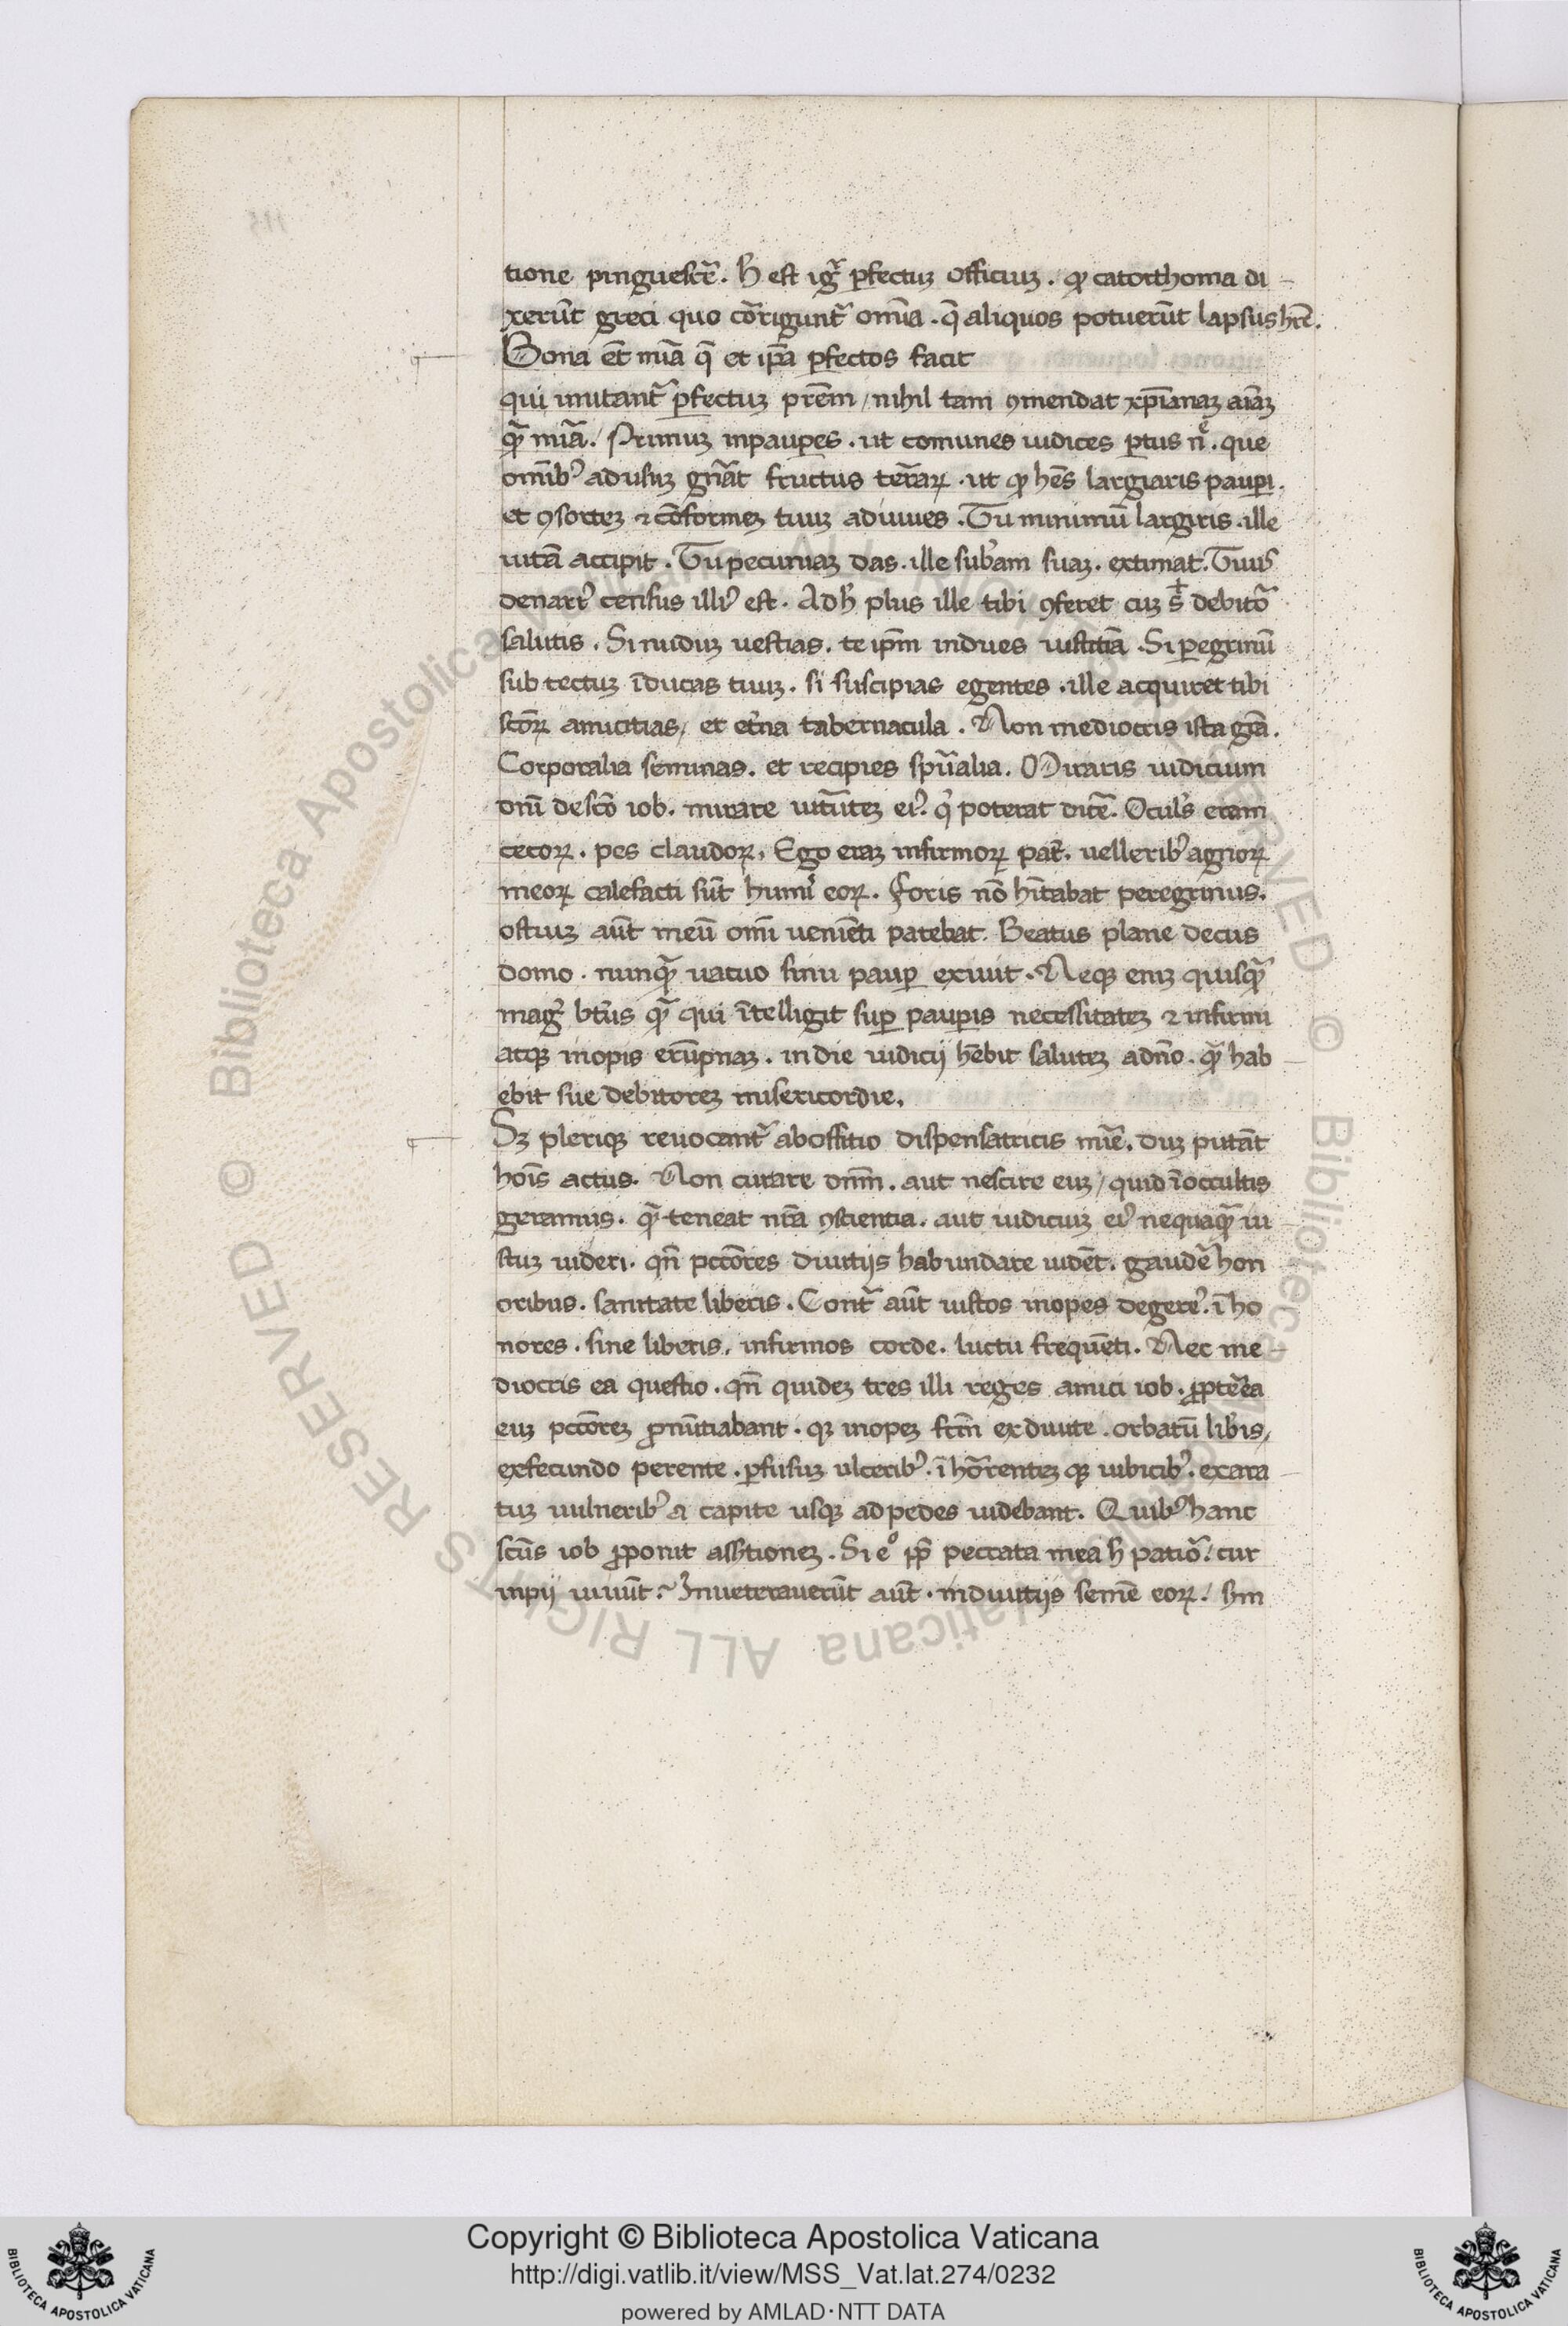 tione pinguescr̃e. h̄ est igr̃ ꝑfectuꝫ officiuꝫ. ꝙ catorthoma di-
xerūt greci quo cor̃riguntr̃ om̄ia. q̄ aliquos potuerūt lapsus hr̄e.
Bona ēt mīa q̄ et ip̄a ꝑfectos facit
qui imitantr̃ ꝑfectuꝫ prēm / nihil tam ꝯmendat xp̄ianaꝫ aīaꝫ
qͣ̃ mīa. / Primuꝫ inpauꝑes. ut comunes iudices ꝑtus nͤ. que
om̄ibꝰ ad usuꝫ gn̄āt fructus ter̃raꝝ. ut ꝙ hēs largiaris pauꝑi.
et ꝯsorteꝫ ⁊ cōformeꝫ tuuꝫ adiuues. Tu minimū largiris. ille
uitā accipit. Tu pecuniaꝫ das. ille sub̄am suaꝫ. extimat. Tuuꝰ
denariꝰ census illiꝰ est. Adh̄ plus ille tibi ꝯferet cuꝫ s̄ debitor̃
salutis. Si nuduꝫ uestias. te ip̄m indues iustitiā. Si ꝑegrinū
sub tectuꝫ īducas tuuꝫ. si suscipias egentes. ille acquiret tibi
sctōꝝ amicitias / et etr̃na tabernacula. Non mediocris ista grā.
Corporalia seminas. et recipies spūalia. Miraris iudicium
dnī de scō iob. mirare uirtūteꝫ eiꝰ. qͥ poterat dicr̃e. Oculꝰs eram
cecoꝝ. pes claudoꝝ. Ego eraꝫ infirmoꝝ patr̃. uelleribꝰ agnoꝝ
meoꝝ calefacti sūt humi eoꝝ. Foris nō hītabat peregrinus.
ostiuꝫ aūt meū om̄i ueniēti patebat. Beatus plane decus
domo. nunqͣ̃ uacuo sinu pauꝑ exiuit. Neqꝫ eniꝫ quisqͣ̃
magꝰ btūs qͣ̃ qui ītelligit suꝑ pauꝑis necessitateꝫ ⁊ infirmi
atqꝫ inopis erūpnaꝫ. in die iudicij hēbit saluteꝫ a dn̄o. qͣ̃ hab-
ebit sue debitoreꝫ misericordie.
Sꝫ pleriqꝫ reuocantr̃ ab offitio dispensatricis mīe. duꝫ putāt
hoīs actus. Non curare dn̄m. aut nescire euꝫ / quid ī occultis
geramus. qͣ̃ teneat nr̄a ꝯscientia. aut iudiciuꝫ eiꝰ nequaqͣ̃ iu-
stuꝫ uideri. qn̄ pcc̄ores diuitijs habundare uidēt. gaudēr̃ hon
oribus. sanitate liberis. Contr̃ aūt iustos inopes degere. ī ho
nores. sine liberis. infirmos corde. luctu frequēti. Nec me-
diocris ea questio. qn̄ quideꝫ tres illi reges amici iob. ꝓpter̃ea
euꝫ pcc̄oreꝫ ꝓnūtiabant. qꝫ inopeꝫ fctm̄ ex diuite. orbatū libr̃is /
ex fecundo perente. ꝑfusuꝫ ulceribꝰ. ī hor̃renteꝫ qꝫ uibicibꝰ. exara-
tuꝫ uulneribꝰ a capite usqꝫ ad pedes uidebant. Quibꝰ hanc
sctūs iob ꝓponit assr̃tioneꝫ. Si eͦ ꝓp̄ peccata mea h̄ patior̃. / cur
inpij uiuūt? Inueterauerūt aūt. in diuitijs semē eoꝝ. / sm